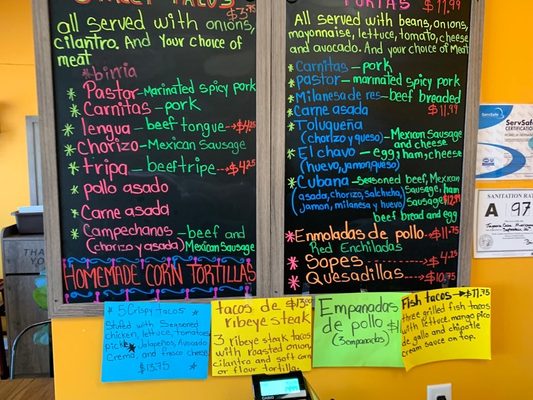 STREET TACOS
$3.75
all served with onions,
cilantro. And Your choice of
meat
birria
Pastor-Marinated spicy pork
Carnitas-pork
lengua-beef tongue
chorizo-Mexican Sausage
tripa-beeftripe→$4.25
pollo asado
Carne asada
Campechanos-beef and
(Chorizo y asada) Mexican Sausage
HOMEMADE CORN TORTILLAS
TORTAS
$11.99
All served with beans, onions,
mayonnaise, lettuce, tomato, cheese
and avocado. And your choice of Meat
Carnitas-pork
pastor-marinated spicy pork
Milanesa de res-beef breaded
Carne asada
$11.99
Toluqueña
(chorizo y queso)-Mexican Sausage
and cheese
El chavo-egg, ham, cheese
(huevo, jamon, queso)
Cubana-seasoned beef, Mexican
(asada, chorizo, salchicha, Sausage, ham
jamon, milanesa y huevo) Sausage $12.99
beef bread and egg
Enmoladas de pollo→$11.75
Red Enchiladas
Sopes $4.25
Quesadillas $10.75
5 Crispy Tacos
Stuffed with Seasoned
chicken, lettuce, tomatoes,
pickle Jalapeños, Avocado
Crema, and fresco cheese
$13.75
tacos de
ribeye steak
3 ribeye steak tacos
with roasted onion,
cilantro and soft corn
or flour tortilla.
Empanadas
de pollo
(3 empanadas)
Fish tacos→$11.75
three grilled fish tacos
with lettuce, mango pico
de gallo and chipotle
cream sauce on top.
ServSafe
CERTIFICATION
SANITATION
A 97
THANK
YOU
CASIO